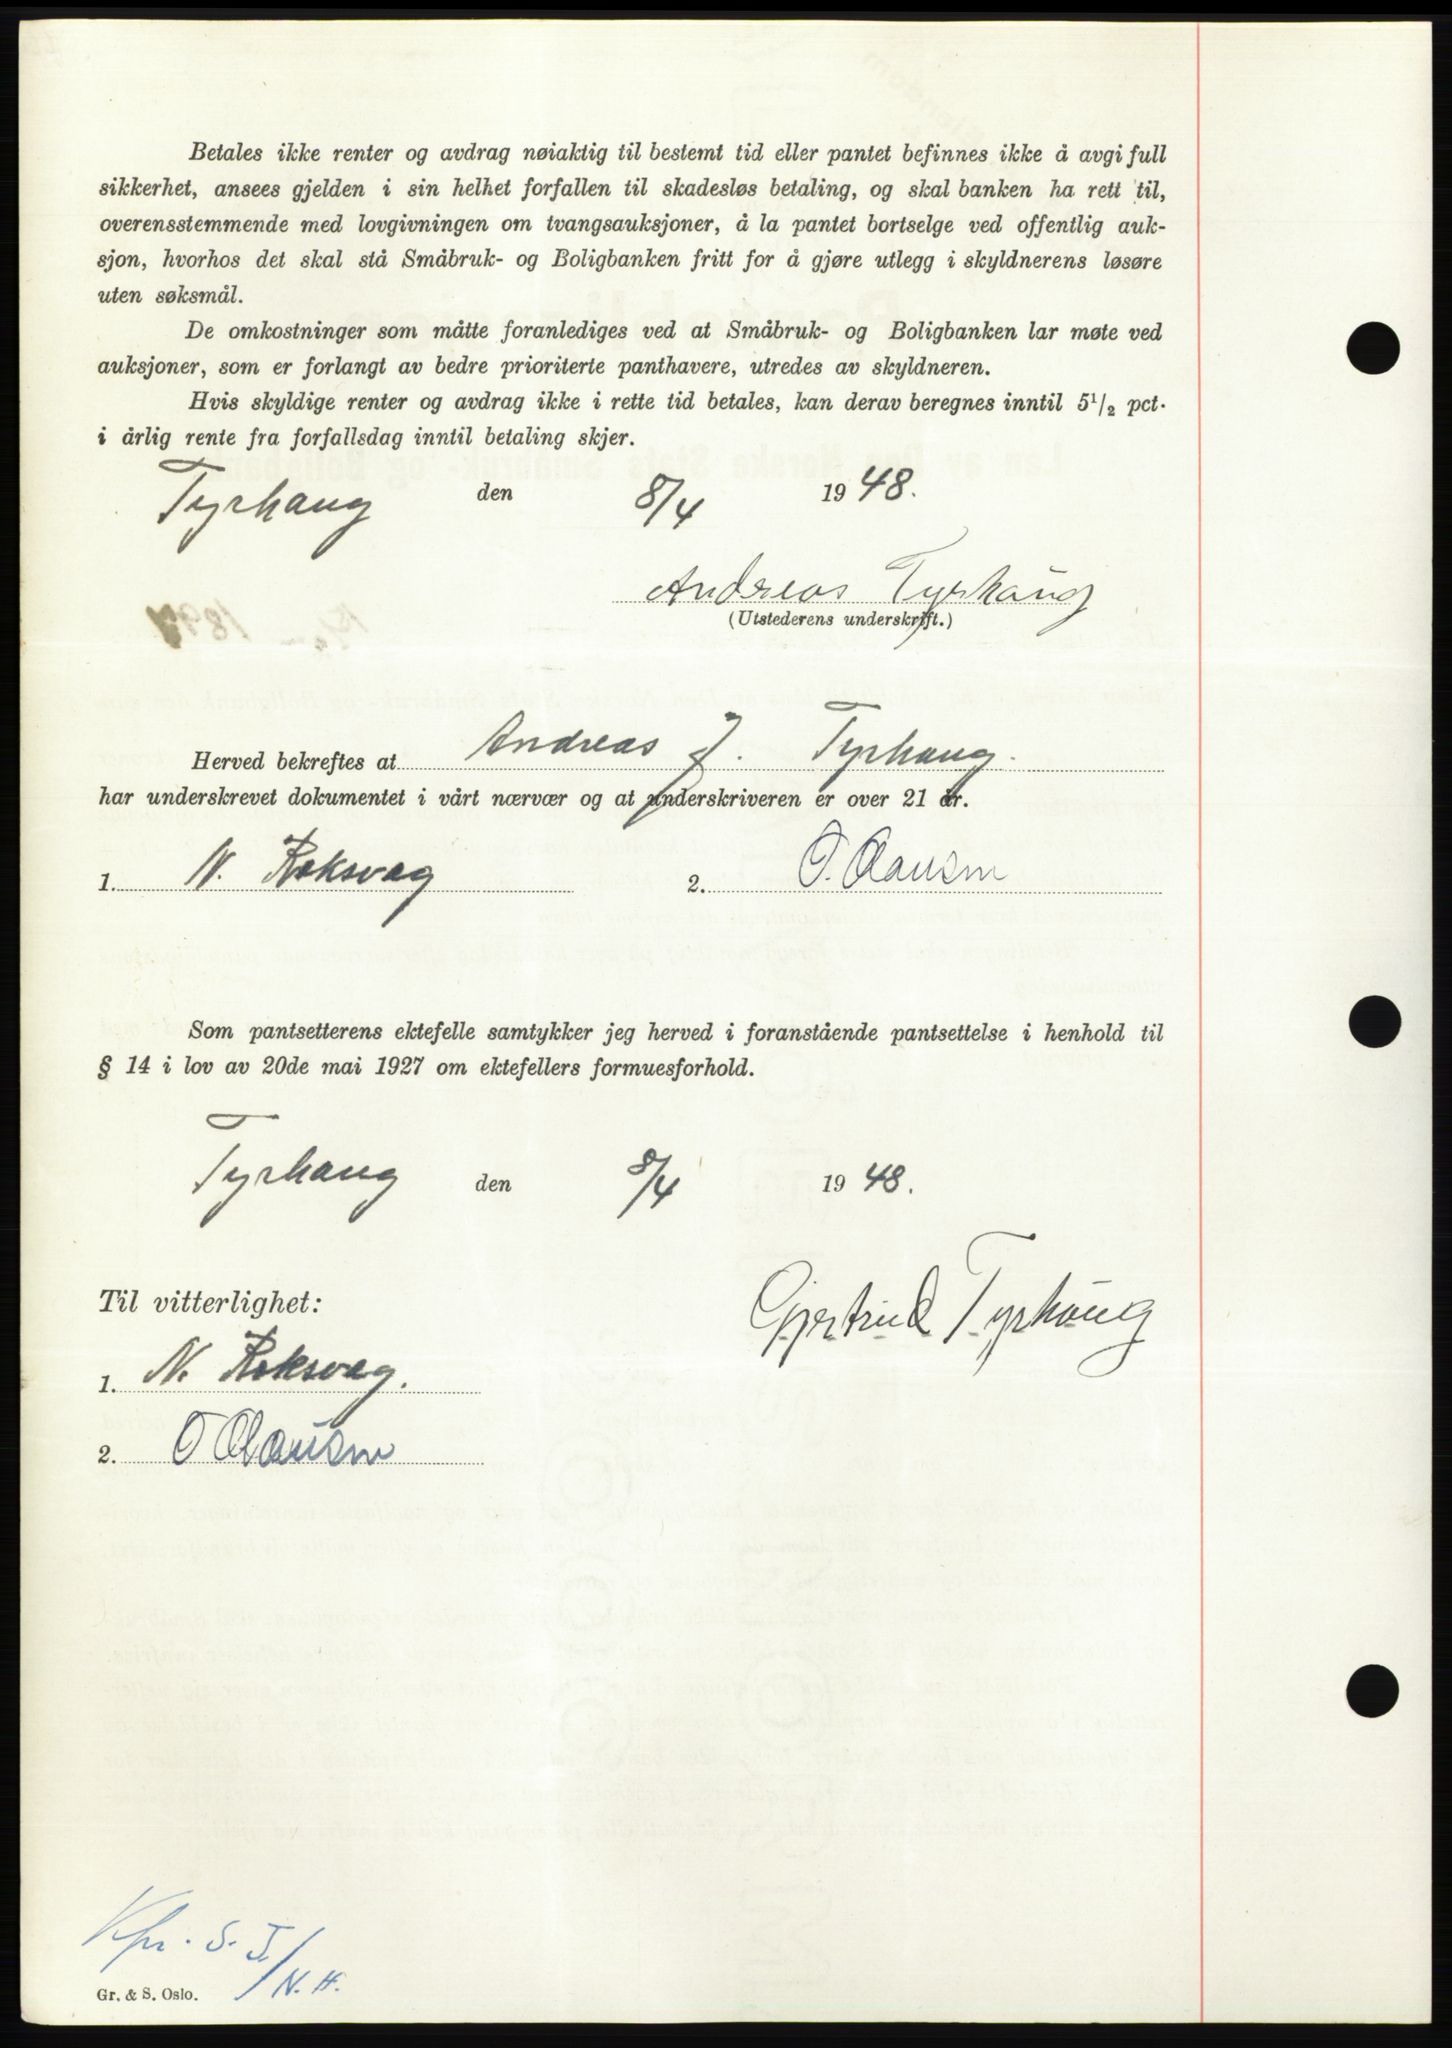 Betales ikke renter og avdrag nøiaktig til bestemt tid eller pantet befinnes ikke å avgi full
sikkerhet, ansees gjelden i sin helhet forfallen til skadesløs betaling, og skal banken ha rett til,
overensstemmende med lovgivningen om tvangsauksjoner, å la pantet bortselge ved offentlig auk-
sjon, hvorhos det skal stå Småbruk- og Boligbanken fritt for å gjøre utlegg i skyldnerens løsøre
uten søksmål.
De omkostninger som måtte foranlediges ved at Småbruk- og Boligbanken lar møte ved
auksjoner, som er forlangt av bedre prioriterte panthavere, utredes av skyldneren.
Hvis skyldige renter og avdrag ikke i rette tid betales, kan derav beregnes inntil 5 1/2 pct.
i årlig rente fra forfallsdag inntil betaling skjer.
Tyrhaug den 8/4 1948.
Andreas Tyrhaug
(Utstederens underskrift.)
Herved bekreftes at Andreas J. Tyrhaug.
har underskrevet dokumentet i vårt nærvær og at underskriveren er over 21 år.
1. N. Roksvag 2. O. Clausen
Som pantsetterens ektefelle samtykker jeg herved i foranstående pantsettelse i henhold til
§ 14 i lov av 20de mai 1927 om ektefellers formuesforhold.
Tyrhaug den 8/4 1948.
Gjertrud Tyrhaug
Til vitterlighet:
1. N. Roksvag.
2. O Clausen
Kpr. S. J./N. H.
Gr. & S. Oslo.